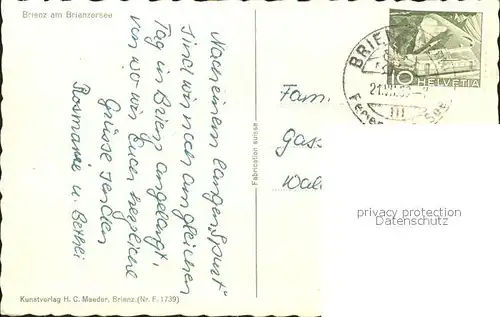 Brienz am Brienzersee
Nach einem langen „Spurt"
sind wir noch am gleichen
Tag in Brienz angelangt,
von wo wir Euch herzliche
Grüsse senden
Rosmarie u. Bethli
Fabrication suisse
BRIEN
21.VII.
III
Ferien
10 HELVETIA
Fam
Gass
Wal
privacy protection
www.ansichtskarten-center.de
Kunstverlag H. C. Maeder, Brienz.(Nr. F. 1739)